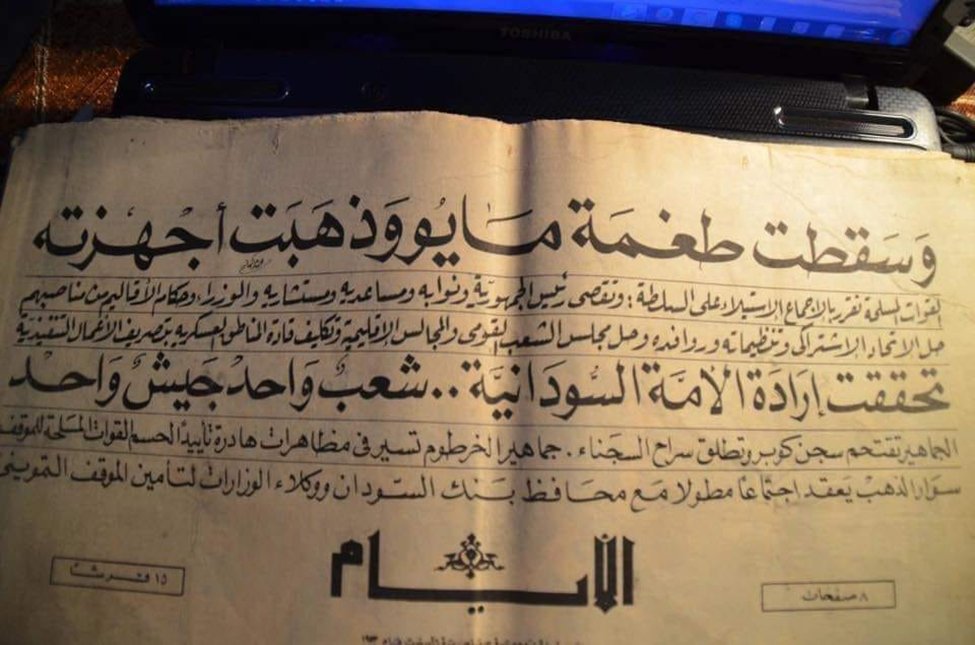 TOSHIBA
وَسَقطت طغمَة مَايُو وَذهَبَت أجْهزته
القوات المسلحة تقرر بالإجماع الإستيلاء على السلطة : وتقصى رئيس الجمهوريّة ونوابه ومساعديه ومستشاريه والوزراء وحكام الأقاليم من مناصبهم
حل الاتحاد الاشتراكى وتنظيماته وروافده وحل مجلس الشعب القومى والمجالس الإقليمية وتكليف قادة المناطق العسكرية بتصريف الأعمال التنفيذية
تحققت إرَادَة الأمّة السُّودَانيَّة .. شعبٌ وَاحدْ جَيشٌ وَاحد
الجماهير تقتحم سجن كوبر وتطلق سراح السجناء . جماهير الخرطوم تسير فى مظاهرات هادرة تأييدًا لحسم القوات المسلحة للموقف
سوَار الذهب يَعقد اجتماعًا مطولا مَع محَافظ بَنك السّودان ووكلاء الوزارات لتأمين الموقف التموينى
الأيام
٨ صفحات
١٥ قرشا